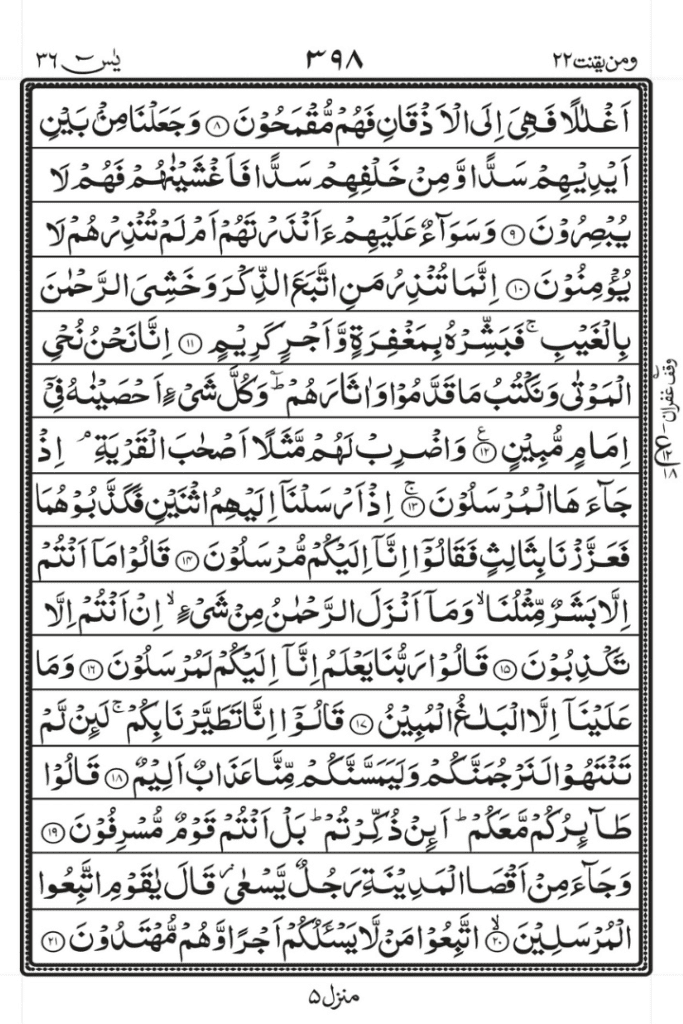 ومن يقنت ٢٢ ٣٩٨ يٰسٓ ٣٦
اَغْلٰلًا فَهِىَ اِلَى الْاَذْقَانِ فَهُمْ مُّقْمَحُوْنَ ۝٨ وَجَعَلْنَا مِنْۢ بَيْنِ
اَيْدِيْهِمْ سَدًّا وَّمِنْ خَلْفِهِمْ سَدًّا فَاَغْشَيْنٰهُمْ فَهُمْ لَا
يُبْصِرُوْنَ ۝٩ وَسَوَآءٌ عَلَيْهِمْ ءَاَنْذَرْتَهُمْ اَمْ لَمْ تُنْذِرْهُمْ لَا
يُؤْمِنُوْنَ ۝١٠ اِنَّمَا تُنْذِرُ مَنِ اتَّبَعَ الذِّكْرَ وَخَشِىَ الرَّحْمٰنَ
بِالْغَيْبِ ۚ فَبَشِّرْهُ بِمَغْفِرَةٍ وَّاَجْرٍ كَرِيْمٍ ۝١١ اِنَّا نَحْنُ نُحْىِ
الْمَوْتٰى وَنَكْتُبُ مَا قَدَّمُوْا وَاٰثَارَهُمْ ۭؔ وَكُلَّ شَىْءٍ اَحْصَيْنٰهُ فِىْٓ
اِمَامٍ مُّبِيْنٍ ۝١٢ۧ وَاضْرِبْ لَهُمْ مَّثَلًا اَصْحٰبَ الْقَرْيَةِ ۘ اِذْ
جَآءَهَا الْمُرْسَلُوْنَ ۝١٣ۚ اِذْ اَرْسَلْنَآ اِلَيْهِمُ اثْنَيْنِ فَكَذَّبُوْهُمَا
فَعَزَّزْنَا بِثَالِثٍ فَقَالُوْٓا اِنَّآ اِلَيْكُمْ مُّرْسَلُوْنَ ۝١٤ قَالُوْا مَآ اَنْتُمْ
اِلَّا بَشَرٌ مِّثْلُنَا ۙ وَمَآ اَنْزَلَ الرَّحْمٰنُ مِنْ شَىْءٍ ۙ اِنْ اَنْتُمْ اِلَّا
تَكْذِبُوْنَ ۝١٥ قَالُوْا رَبُّنَا يَعْلَمُ اِنَّآ اِلَيْكُمْ لَمُرْسَلُوْنَ ۝١٦ وَمَا
عَلَيْنَآ اِلَّا الْبَلٰغُ الْمُبِيْنُ ۝١٧ قَالُوْٓا اِنَّا تَطَيَّرْنَا بِكُمْ ۚ لَئِنْ لَّمْ
تَنْتَهُوْا لَنَرْجُمَنَّكُمْ وَلَيَمَسَّنَّكُمْ مِّنَّا عَذَابٌ اَلِيْمٌ ۝١٨ قَالُوْا
طَآئِرُكُمْ مَّعَكُمْ ۭ اَئِنْ ذُكِّرْتُمْ ۭ بَلْ اَنْتُمْ قَوْمٌ مُّسْرِفُوْنَ ۝١٩
وَجَآءَ مِنْ اَقْصَا الْمَدِيْنَةِ رَجُلٌ يَّسْعٰى ۡ قَالَ يٰقَوْمِ اتَّبِعُوا
الْمُرْسَلِيْنَ ۝٢٠ۙ اتَّبِعُوْا مَنْ لَّا يَسْئَلُكُمْ اَجْرًا وَّهُمْ مُّهْتَدُوْنَ ۝٢١
وقف غفران
منزل ٥